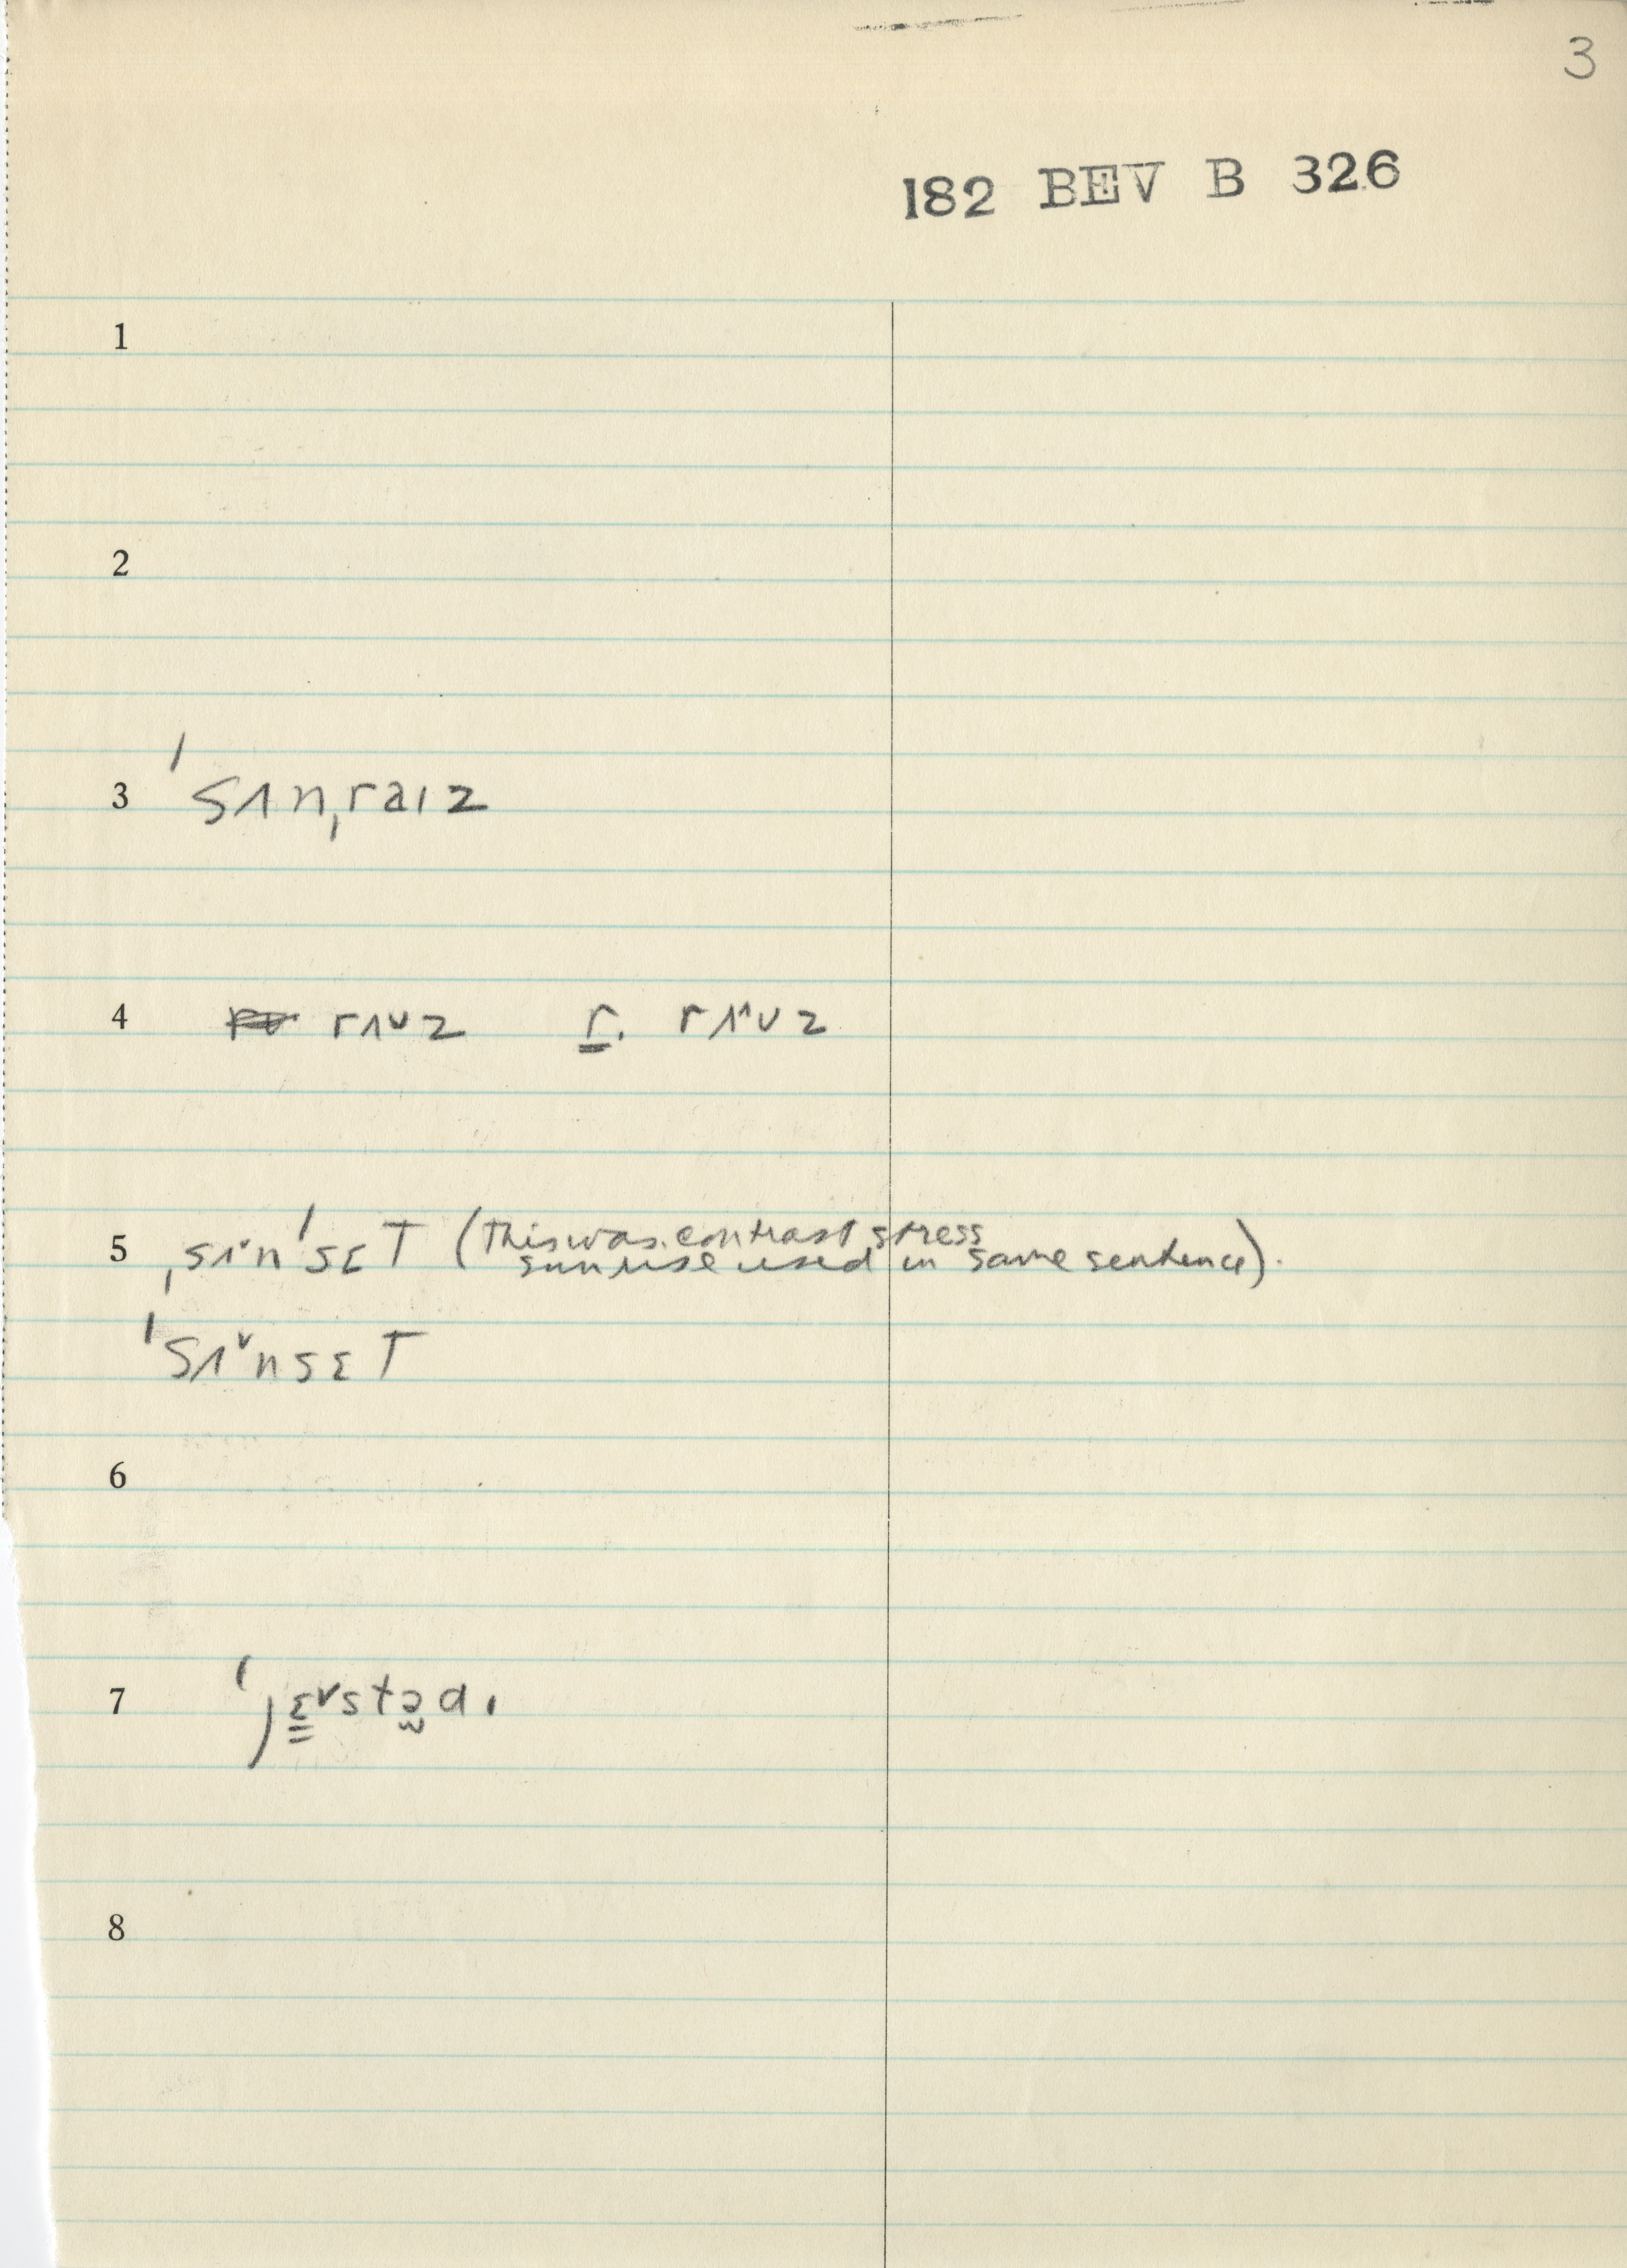 3
182 BEV B 326
1
2
3 ˈsʌnˌraɪz
4 rʌ˅z r. rʌ^˅z
5 ˌsʌ˅nˈsɛT (This was contrast stress
sunrise used in same sentence).
ˈsʌ˅nsɛT
6
7 ˈjɛ˅stədɪ
8